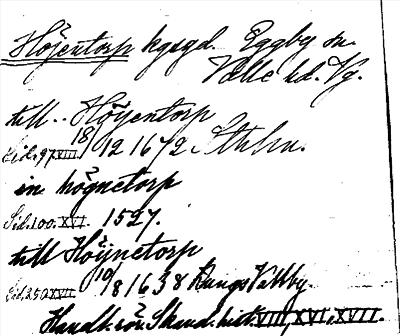 Höjentorp kgsgd. Eggby sn.
Valle hd. Vg.
till.. Höyentorp
Sid. 97 XVII. 18/12 1672 Sthlm.
in högnetorp
Sid. 100. XVI. 1527.
till Höijnetorp
Sid. 250 XVII. 10/8 1638 KungsVallby.
Handl. rör. Skand. hist. VIII XVI, XVII.